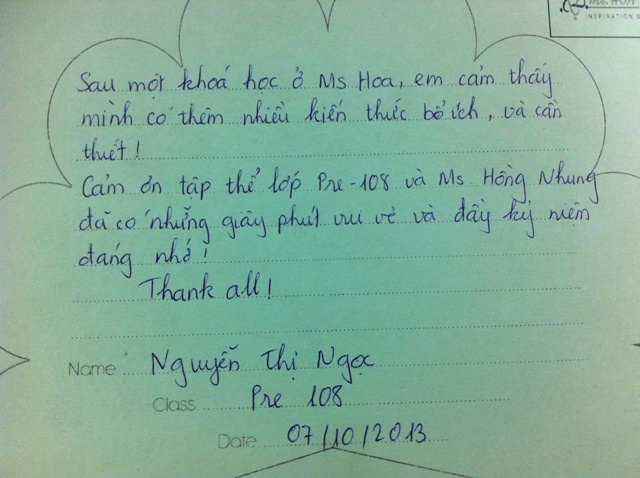 INSPIRATION
Sau một khoá học ở Ms Hoa, em cảm thấy
mình có thêm nhiều kiến thức bổ ích, và cần
thiết!
Cảm ơn tập thể lớp Pre-108 và Ms Hồng Nhung
đã có những giây phút vui vẻ và đầy kỷ niệm
đáng nhớ!
Thank all!
Name Nguyễn Thị Ngọc
Class Pre 108
Date 07/10/2013